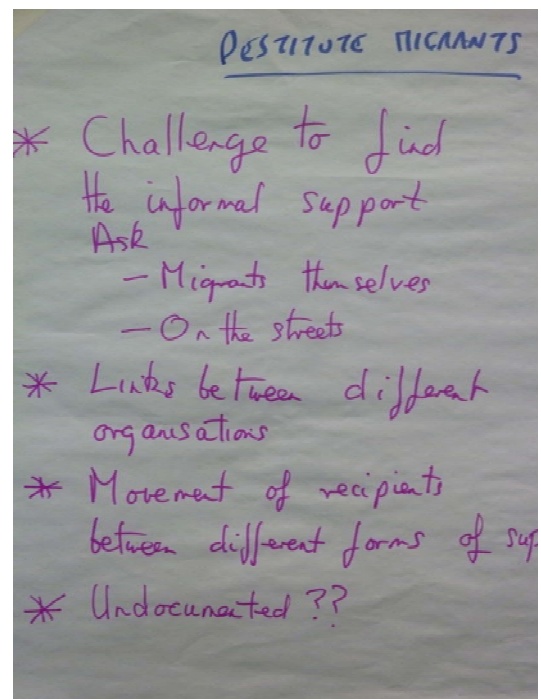 DESTITUTE MIGRANTS
* Challenge to find
the informal support
Ask
– Migrants themselves
– On the streets
* Links between different
organisations
* Movement of recipients
between different forms of sup
* Undocumented ??